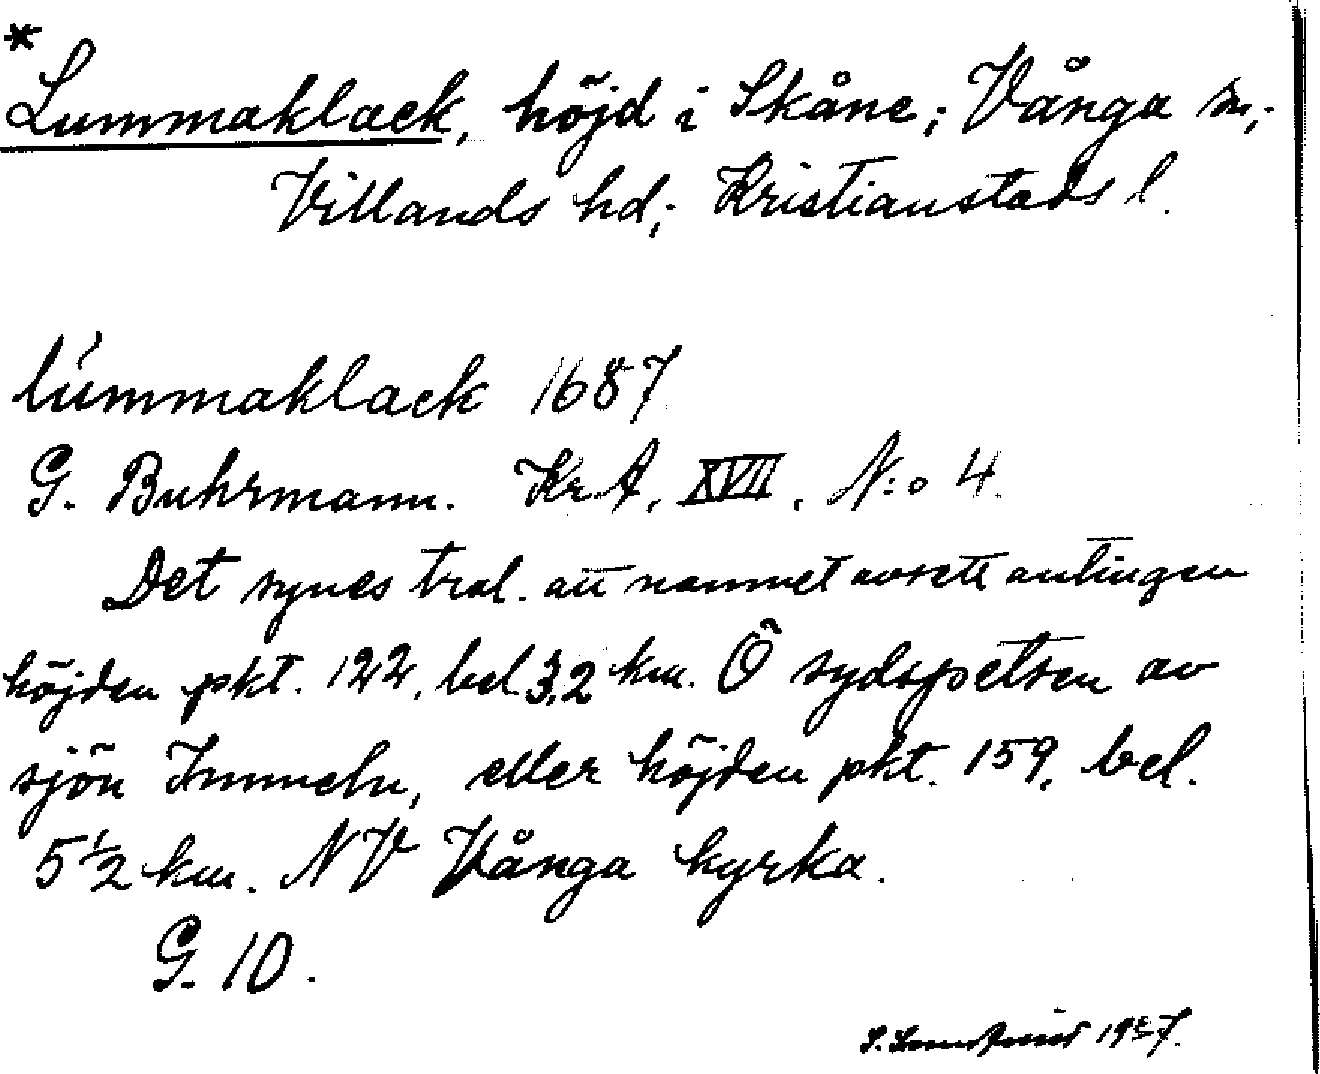 *
Lummaklack, höjd i Skåne; Vånga sn;
Villands hd; Kristianstads l.
lúmmaklack 1687
G. Buhrmann. KrA, XVII, N:o 4.
Det synes trol. att namnet avsett antingen
höjden pkt. 122, bel. 3,2 km. Ö sydspetsen av
sjön Immeln, eller höjden pkt. 159, bel.
5 1/2 km. NV Vånga kyrka.
G. 10.
S. 1937.